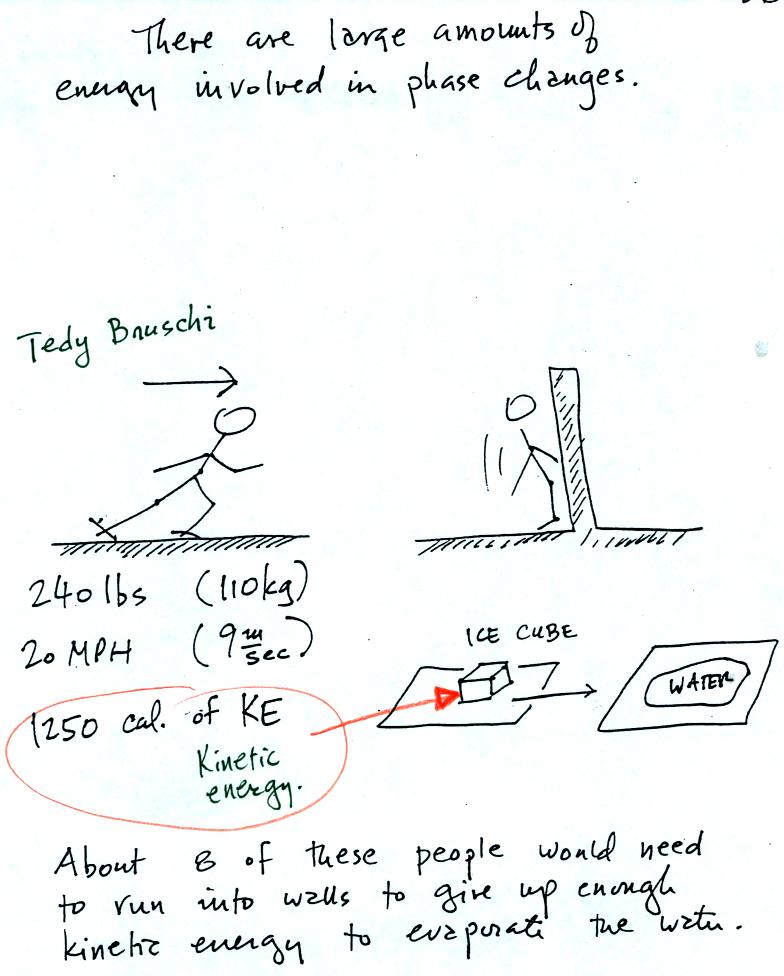 There are large amounts of
energy involved in phase changes.
Tedy Bruschi
240 lbs (110kg)
20 MPH (9 m/sec)
1250 cal. of KE
Kinetic
energy.
ICE CUBE
WATER
About 8 of these people would need
to run into walls to give up enough
kinetic energy to evaporate the water.